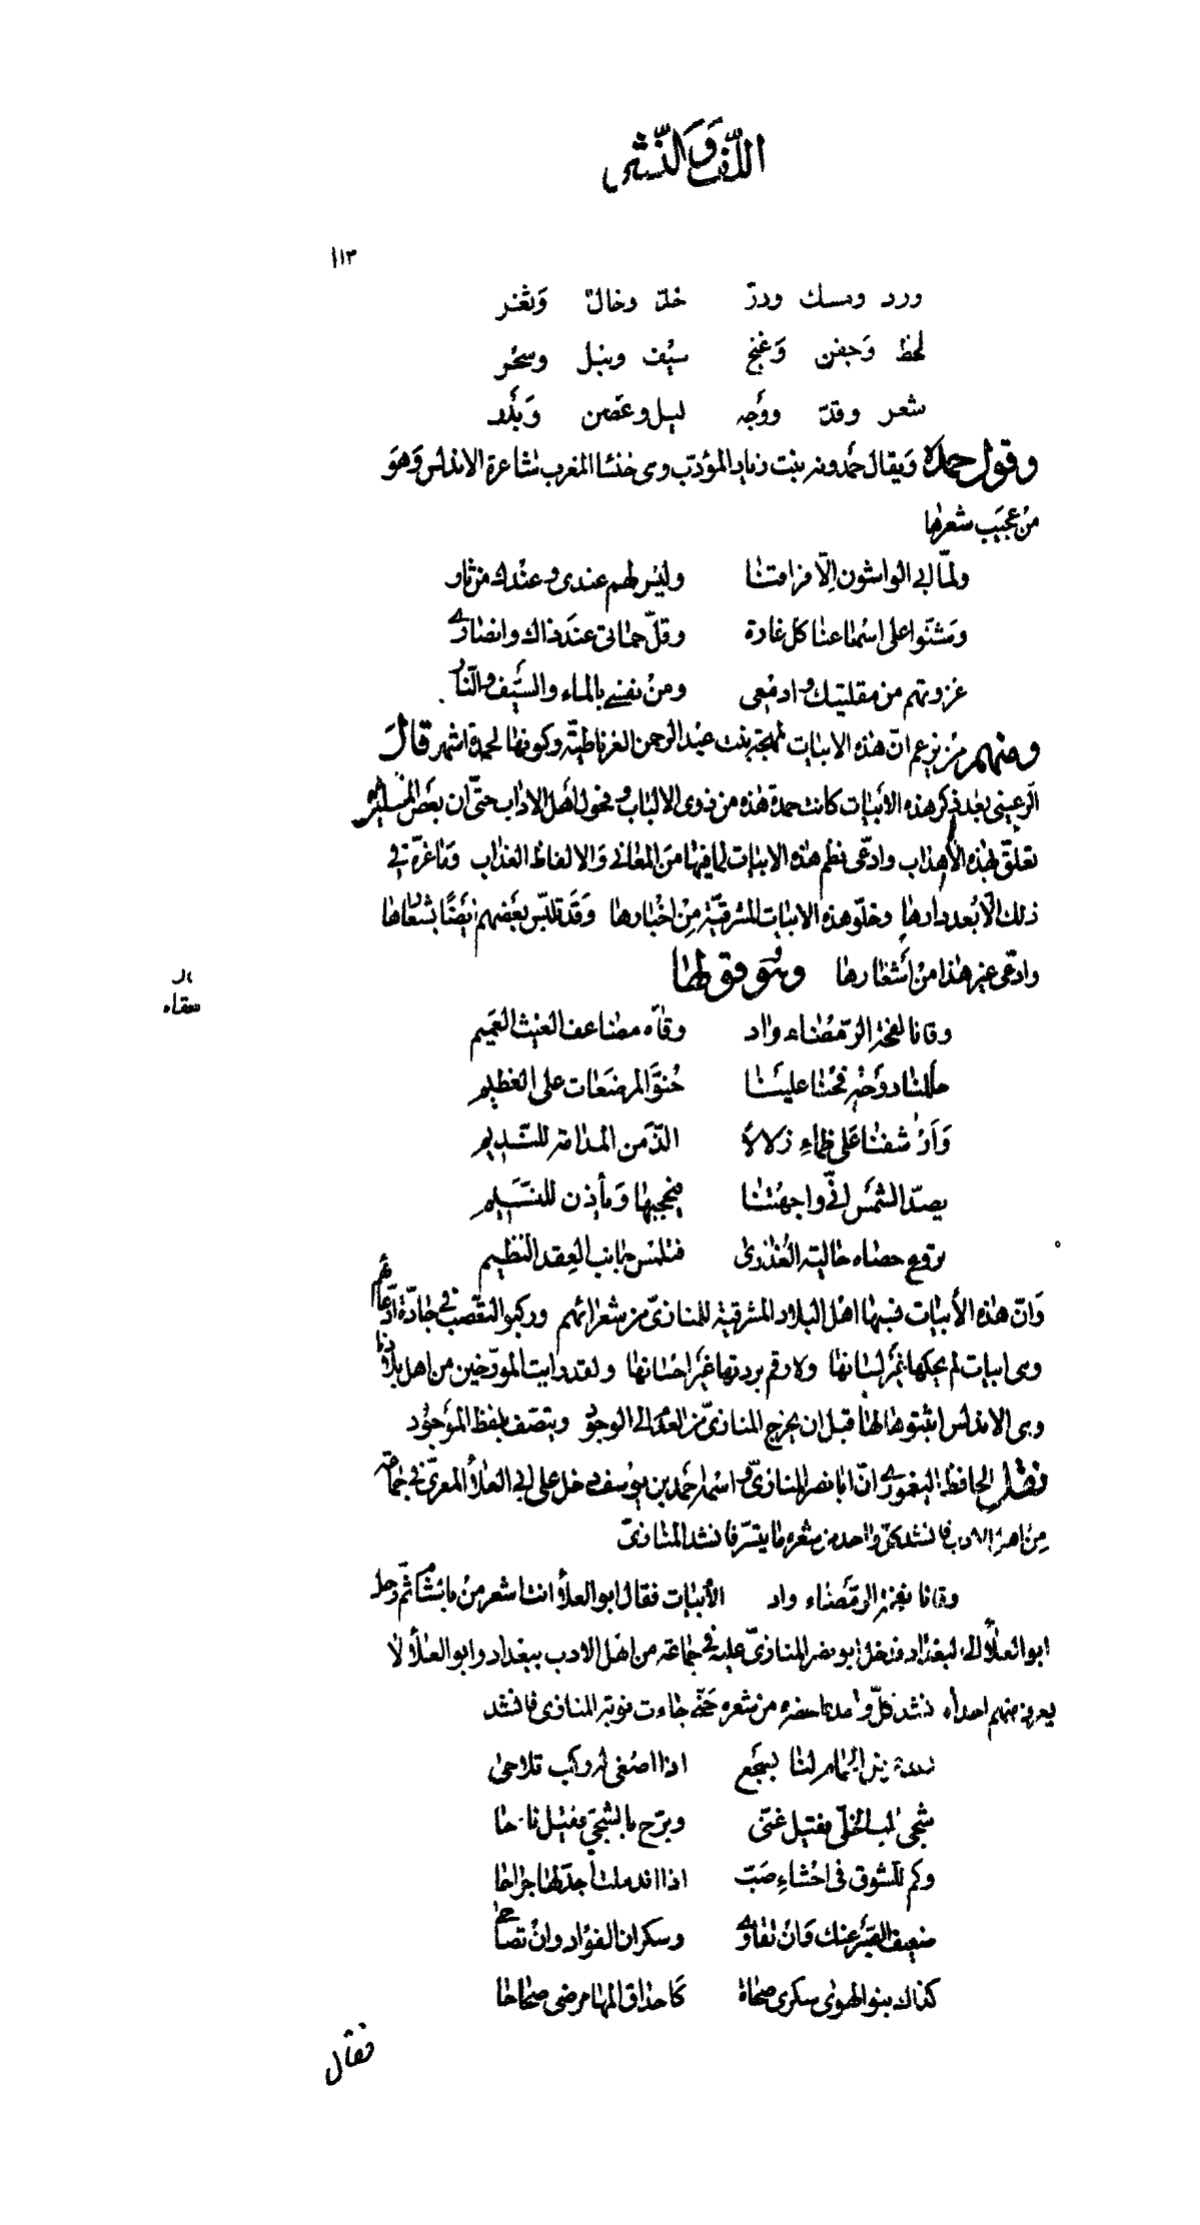 اللّف والنّشر
١١٣
ورد ومسك ودرّ خدّ وخال وَثغر
لحظ وَجفن وَغنج سيف ونبل وسحر
شعر وقدّ ووجه ليل وغصن وَبدر
وقول حمدة وَيقال حمدونه بنت زياد المؤدّب وهى خنسا المغرب شاعرة الاندلس وَهوَ
من عجيب شعرها
ولمّا ابى الواشون الّا فراقنا وليس لهم عندى وعندك من ثار
وَشنّوا على اسماعنا كل غارة وقلّ حماتى عند ذاك وانصارى
غزوتهم من مقلتيك وادمعى ومن نفسى بالماء والسيف والنّار
ومنهم من يزعم انّ هذه الابيات لمهجة بنت عبد الرحمن الغرناطيّة وكونها لحمدة اشهر قال
الرعينى بعد ذكر هذه الأبيات كانت حمدة هذه من ذوى الالباب وفحول اهل الاداب حتّى ان بعض
تعلّق بهذه الأهداب وادّعى نظم هذه الابيات لما فيها من المعانى وَالالفاظ العذاب وَمَا غرّه فى
ذلك الّا بُعد دارها وخلوّ هذه الابيات المشرقيّة من اخبارها وَقَد تلبّس بعضهم أيضًا بشعارها
وادّعى غير هذا من أشعارها وهو قولها
سقاه
وقانا لفحة الرّمضاء واد وقاه مضاعف الغيث العميم
حللنا دوحه فحنا علينا حُنوّ المرضعات على الفطيم
وَارشفنا على ظماءٍ زلالاً الذّ من المدامة للنّديم
يصدّ الشمس انّى واجهتنا فيحجبها وَيأذن للنسيم
يروع حصاه حالية العذارى فتلمس جانب العقد النظيم
وَانّ هذه الأبيات نسبها اهل البلاد المشرقية للمنازىّ من شعرائهم وركبوا التعصّب فى جادّة ادّعائهم
وهى ابيات لم يحكها غير لسانها ولا رقم بردتها غير احسانها ولقد رايت المورّخين من اهل بلادنا
وهى الاندلس اثبتوها لها قبل ان يخرج المنازىّ من العدم الى الوجود ويتّصف بلفظ الموجود
نقل الحافظ اليغمورى انّ ابا نصر المنازىّ واسمه احمد بن يوسف دخل على ابى العلاء المعرّىّ فى جماعة
من اهل الادب فانشد كلّ واحد من شعره ما تيسّر فانشد المنازىّ
وقانا لفحة الرمضاء واد الأبيات فقال ابو العلاء انت اشعر من بالشام ثمّ رحل
ابو العلاء الى بغداد فدخل ابو نصر المنازىّ عليه فى جماعة من اهل الادب ببغداد وابو العلاء لا
يعرف منهم احدا فانشد كلّ واحد ما حضره من شعره حتّى جاءت نوبة المنازى فانشد
لقد عرض الحمام لنا بسجع اذا اصغى له ركب تلاحى
شجى قلب الخلّى فقيل غنّى وبرّح بالشجىّ فقيل ناحا
وكم للشوق فى احشاءِ صبّ اذا اندملت اجدّ لها جراحا
ضعيف الصبر عنك وَان تقاوى وسكران الفؤاد وان تصاحى
كذاك بنو الهوى سكرى صحاة كاحداق المها مرضى صحاحا
فقال